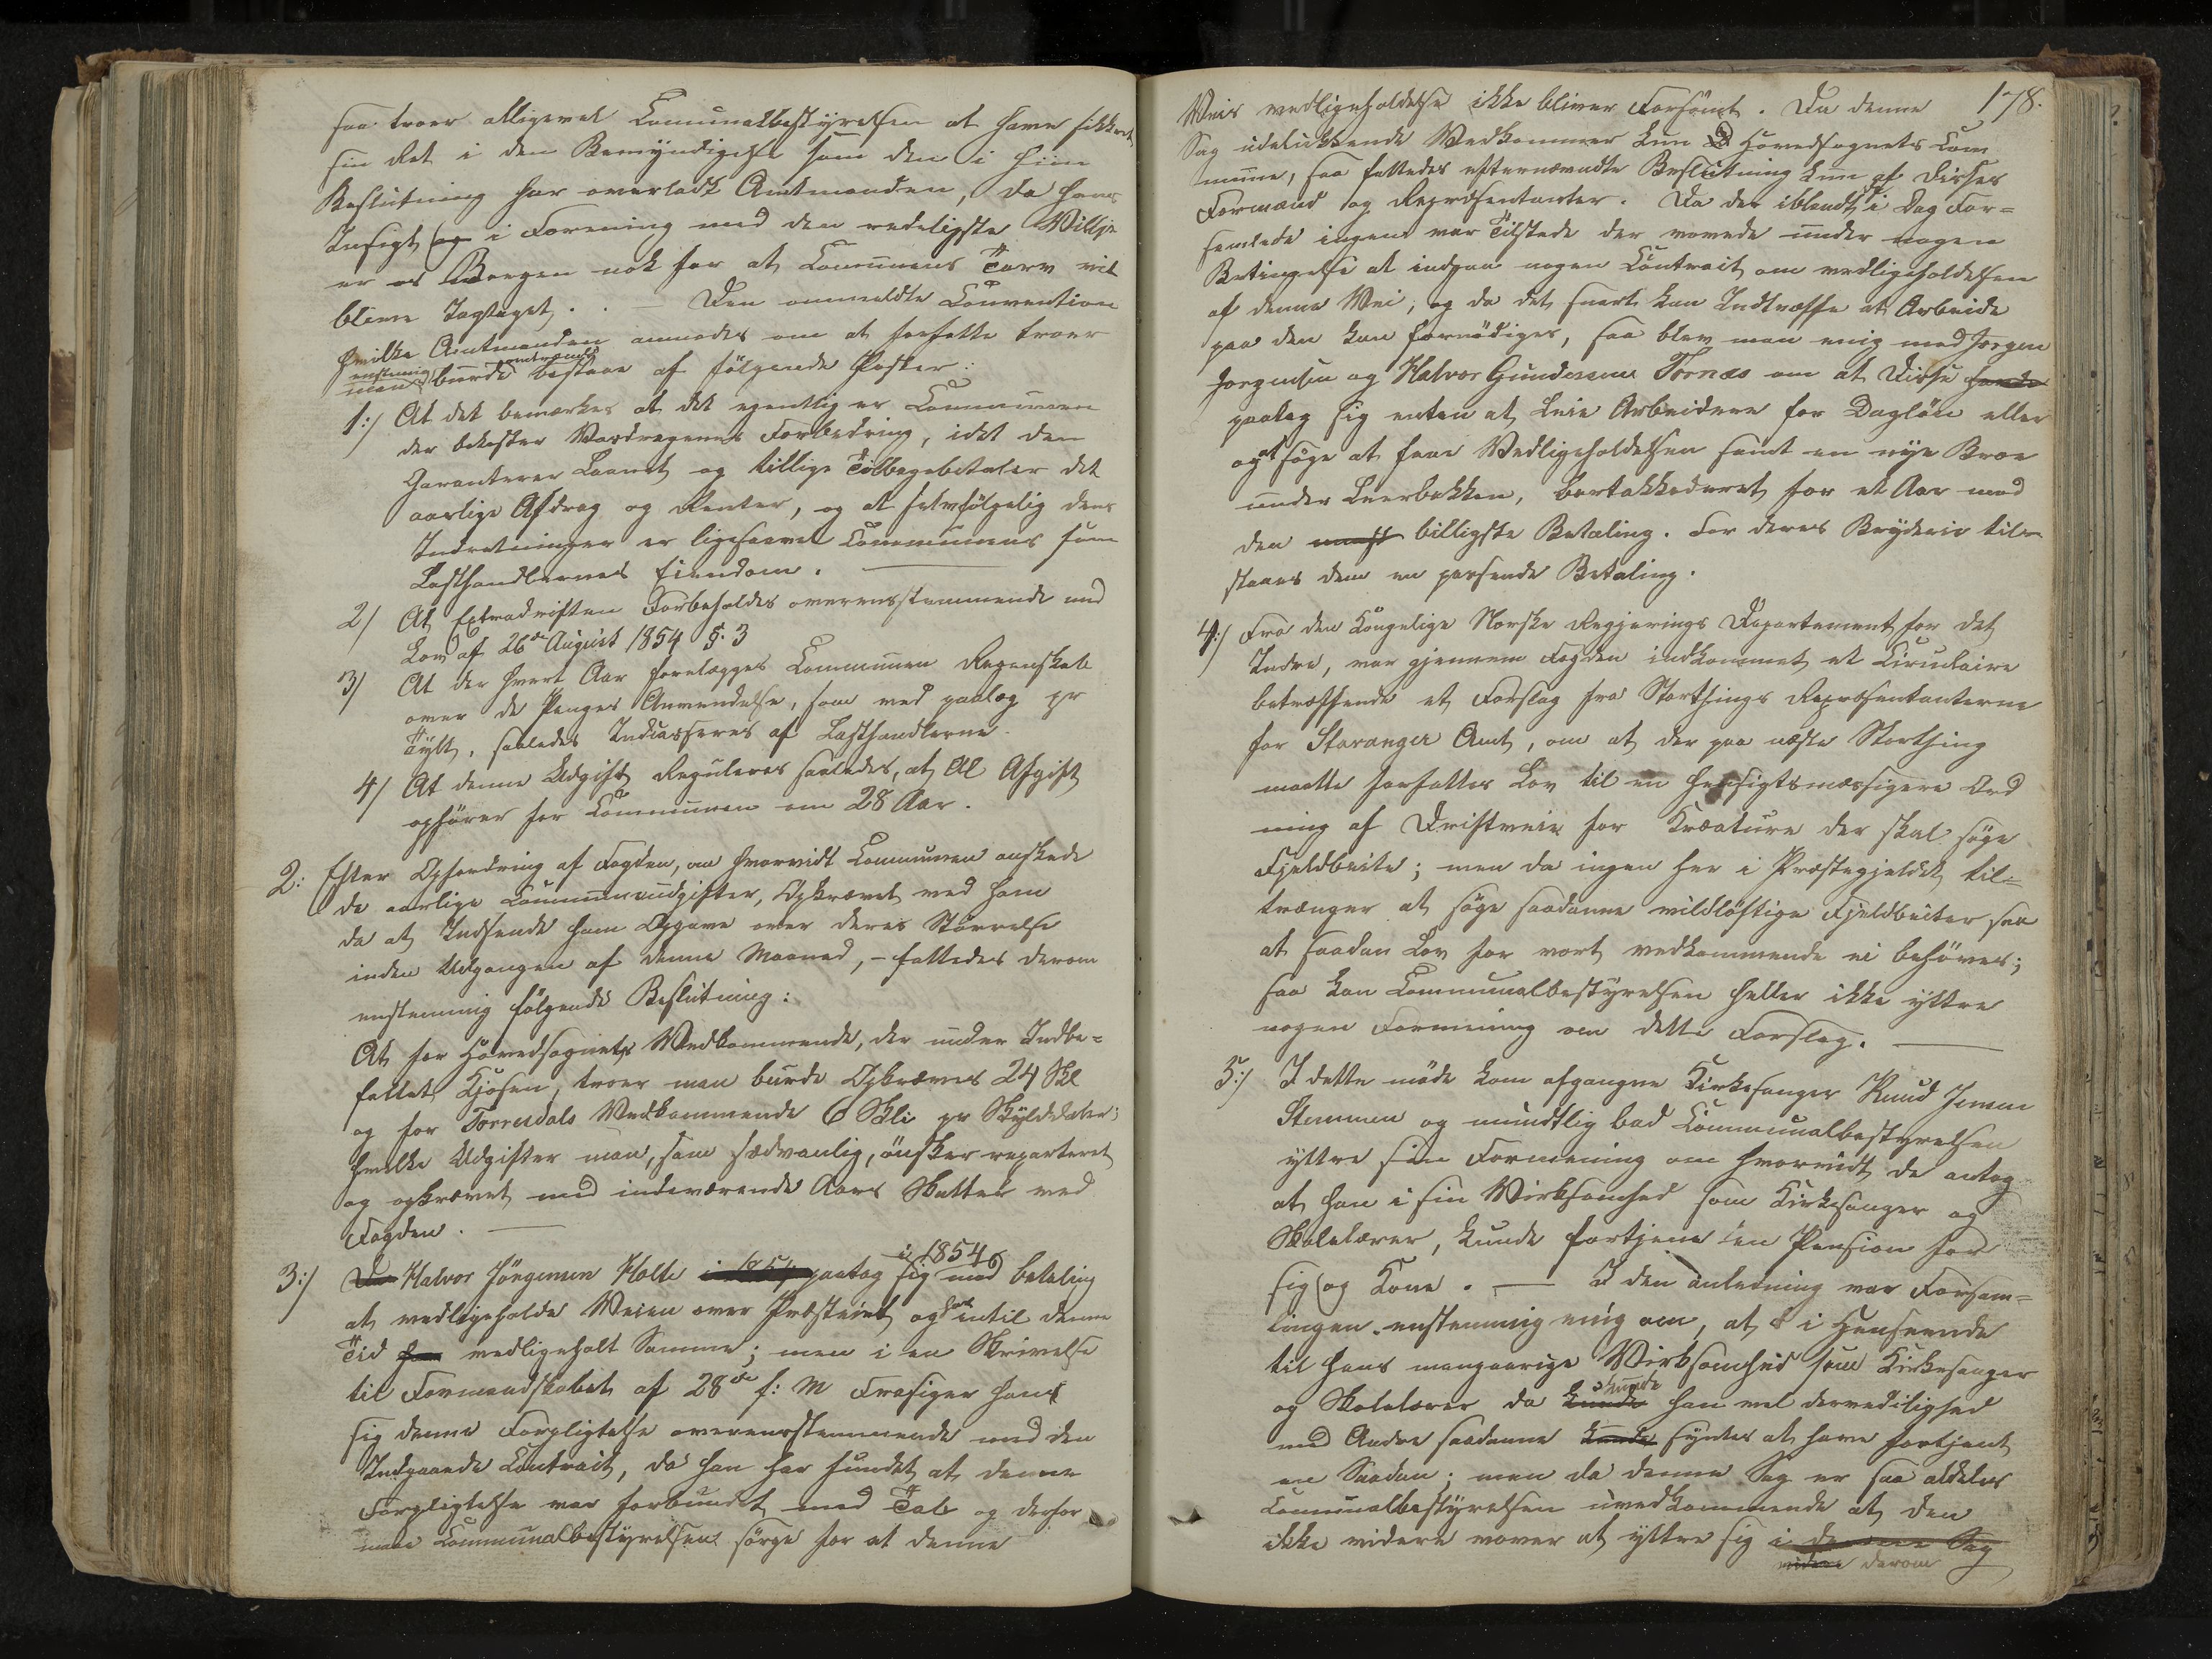 saa troer alligevel Communalbestyrelsen at have sikkret
sin Ret i den Bemyndigelse som den i sin
Beslutning har overladt Amtmanden, da hans
Indsigt og i Forening med den redeligste Villje
er os Borgen nok for at Communens Tarv vil
blive Iagtaget. — Den ommeldte Convention
hvilke Amtmanden anmodes om at forfatte troer
man enstemmig burde omtrændt bestaae af følgende Poster:
1:/ At det bemærkes at det egentlig er Communen
der bekoster Vasdragenes Forbedring, idet den
Garanterer Laanet og tillige Tilbagebetaler det
aarlige Afdrag og Renter, og at selvfølgelig dens
Indretninger er ligesaavel Communens som
Lasthandlernes Eiendom. —
2/ At Extradriften Forbeholdes overensstemmende med
Lov af 26de August 1854 §. 3
3/ At der hvert Aar forelægges Communen Regenskab
over de Penges Anvendelse, som ved paalæg pr
Tylt, saaledes Indcasseres af Lasthandlerne.
4/ At denne Udgift Reguleres saaledes, at Al Afgift
ophører for Communen om 28 Aar.
2: Efter Opfordring af Fogden, om hvorvidt Communen ønskede
de aarlige Communeudgifter, Opkrævet ved ham
da at Indsende ham Opgave over deres Størrelse
inden Udgangen af denne Maaned, – fattedes derom
enstemmig følgende Beslutning:
At for Hovedsognets Vedkommende, der under Indbe=
fattet Kjosen, troer man burde Opkræves 24 Skl
og for Torresdals Vedkommende 6 Skl pr Skylddaler;
hvilke Udgifter man, som sædvanlig, ønsker reparteret
og opkrævet med indeværende Aars Skatter ved
Fogden. —
3:/ Da Halvor Jörgensen Holte i 1854 paatog sig i 1854 mod betaling
at vedligeholde Veien over Præsteiet og har intil denne
Tid har vedligeholt Samme; men i en Skrivelse
til Formandskabet af 28de f: M Frasiger han
sig denne Forpligtelse overensstemmende med den
Indgaaede Contract, da han har fundet at denne
Forpligtelse var forbundet med Tab og derfor
maa Communalbestyrelsen sörge for at denne
178.
Veis vedligeholdelse ikke bliver Forsömt. Da denne
Sag udelukkende Vedkommer kun Hovedsognets Com
mune, saa fattedes efternævndte Beslutning kun af disses
Formænd og Repræsentanter. Da der iblandt i Dag For=
samlede ingen var Tilstede der vovede under nogen
Betingelse at indgaa nogen Contract om vedligeholdelsen
af denne Vei; og da det snart kan Indtræffe at Arbeide
paa den kan fornödiges, saa blev man enig med Jørgen
Jørgensen og Halvor Gundersen Tornæs om at Disse
paatog sig enten at leie Arbeidere for Daglön eller
og at söge at faae Vedligeholdelsen samt en nye Broe
under Leerbakken, bortakkorderet for et Aar mod
den billigste Betaling. For deres Bryderie til=
staaes dem en passende Betaling.
4:/ Fra den Kongelige Norske Regjerings Departement for det
Indre, var gjennem Fogden indkommet et Circulaire
betræffende et Forslag fra Storthings Repræsentanterne
for Stavanger Amt, om at der paa næste Storthing
maatte forfattes Lov til en hensigtsmæssigere Ord
ning af Driftveie for Kreature der skal söge
Fjeldbeite; men da ingen her i Præstegjeldet til=
trænger at söge saadanne vidløftige Fjeldbeiter saa
at saadan Lov for vort vedkommende ei behöves;
saa kan Communalbestyrelsen heller ikke yttre
nogen Formening om dette Forslag. —
5:/ I dette möde kom afgangne Kirkesanger Knud Jensen
Stemmen og mundtlig bad Communalbestyrelsen
yttre sin Formening om hvorvidt de antog
at han i sin Virksomhed som Kirkesanger og
Skolelærer, kunde fortjene en Pension for
sig og Kone. — I den anledning var Forsam=
lingen enstemmig enig om, at i Henseende
til hans mangaarige Virksomhed som Kirkesanger
og Skolelærer da kunde skunde han vel
med Andre saadanne kunde synes at have fortjent
en Saadan; men da denne Sag er saa aldeles
Communalbestyrelsen uvedkommende at den
ikke videre vover at yttre sig i denne Sag
videre derom